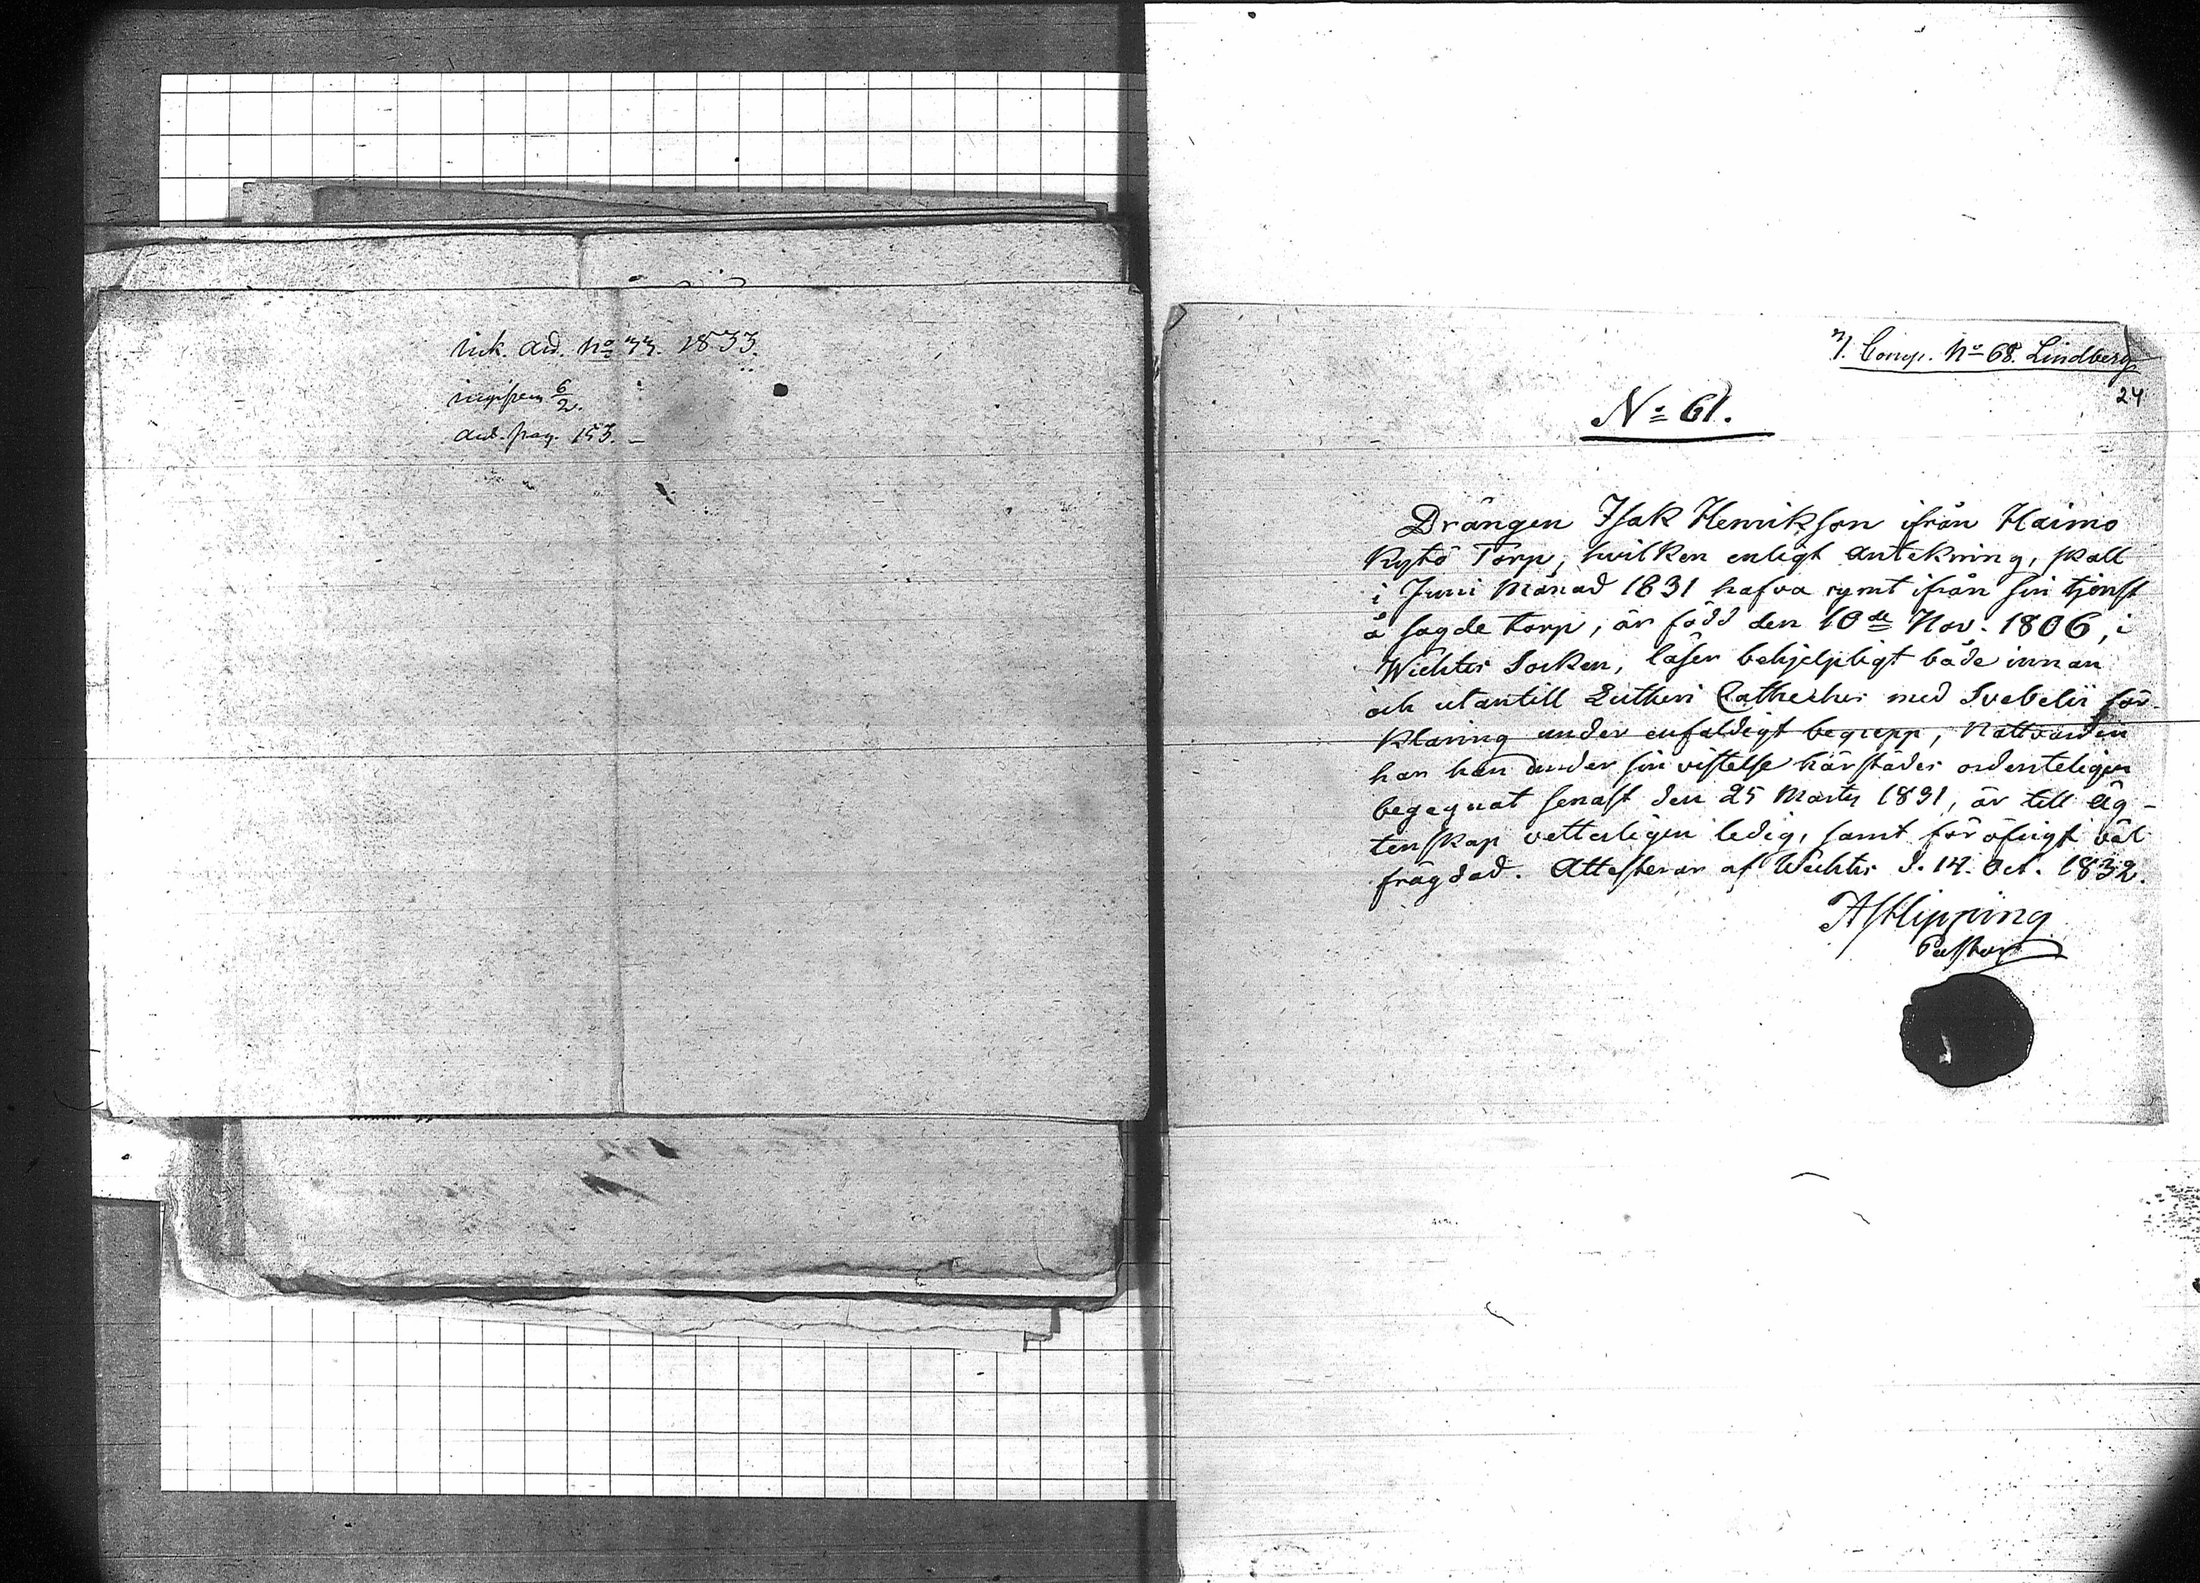 No 33. 1833.
6/2.
pag. 153. –
7. Comp. No 68. Lindberg
24
No 61.
Drängen Isak Henrikson ifrån Haimo
Kytö Torp, hvilken enligt antekning, skall
i Juni Månad 1831 hafva rymt ifrån sin tjenst
å sagde torp, är född den 10de Nov. 1806, i
Wichtis Socken, läser behjelpligt både innan
och utantill Lutheri Cateches med Svebelii för-
klaring under enfaldigt begrepp, Nattvarden
har han under sin vistelse härstädes ordenteligen
begagnat senast den 25 Martii 1831, är till äg-
tenskap vetterligen ledig, samt för öfrigt väl
frägdad. Attesterar af Wichtis d. 14. Oct. 1832.
Hipping
Pastor